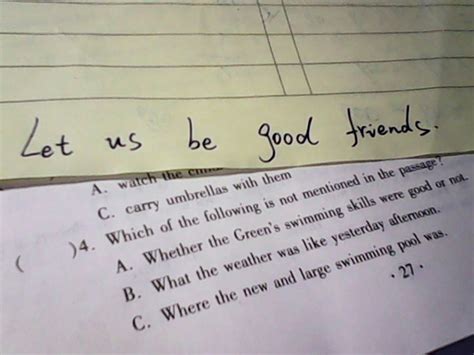 Let us be good friends.
A. watch the
C. carry umbrellas with them
( )4. Which of the following is not mentioned in the passage?
A. Whether the Green's swimming skills were good or not.
B. What the weather was like yesterday afternoon.
C. Where the new and large swimming pool was.
· 27 ·